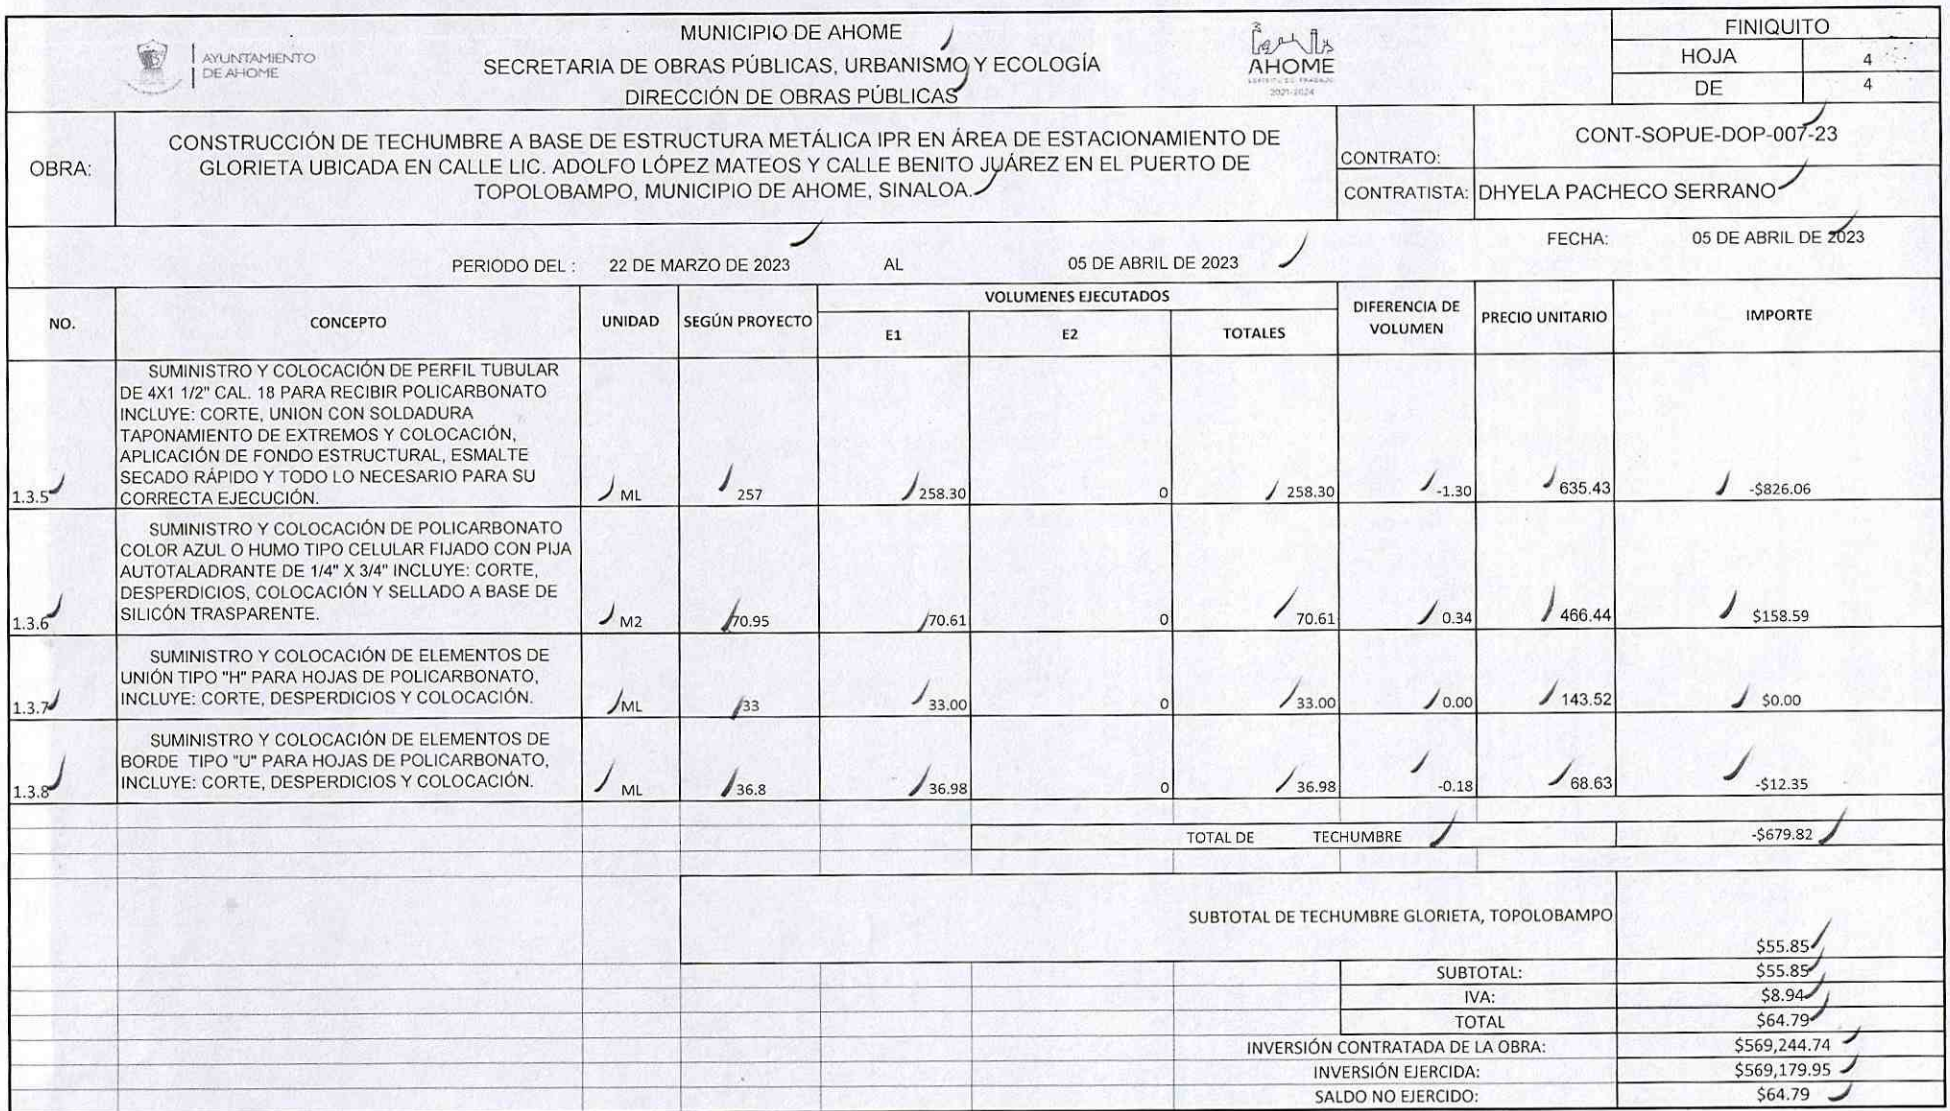 AYUNTAMIENTO
DE AHOME
MUNICIPIO DE AHOME
SECRETARIA DE OBRAS PÚBLICAS, URBANISMO Y ECOLOGÍA
DIRECCIÓN DE OBRAS PÚBLICAS
AHOME
2021-2024
FINIQUITO
HOJA 4
DE 4
OBRA:
CONSTRUCCIÓN DE TECHUMBRE A BASE DE ESTRUCTURA METÁLICA IPR EN ÁREA DE ESTACIONAMIENTO DE
GLORIETA UBICADA EN CALLE LIC. ADOLFO LÓPEZ MATEOS Y CALLE BENITO JUÁREZ EN EL PUERTO DE
TOPOLOBAMPO, MUNICIPIO DE AHOME, SINALOA.
CONTRATO: CONT-SOPUE-DOP-007-23
CONTRATISTA: DHYELA PACHECO SERRANO
FECHA: 05 DE ABRIL DE 2023
PERIODO DEL : 22 DE MARZO DE 2023 AL 05 DE ABRIL DE 2023
NO. CONCEPTO UNIDAD SEGÚN PROYECTO VOLUMENES EJECUTADOS DIFERENCIA DE VOLUMEN PRECIO UNITARIO IMPORTE
E1 E2 TOTALES
SUMINISTRO Y COLOCACIÓN DE PERFIL TUBULAR
DE 4X1 1/2" CAL. 18 PARA RECIBIR POLICARBONATO
INCLUYE: CORTE, UNION CON SOLDADURA
TAPONAMIENTO DE EXTREMOS Y COLOCACIÓN,
APLICACIÓN DE FONDO ESTRUCTURAL, ESMALTE
SECADO RÁPIDO Y TODO LO NECESARIO PARA SU
CORRECTA EJECUCIÓN.
1.3.5 ML 257 258.30 0 258.30 -1.30 635.43 -$826.06
SUMINISTRO Y COLOCACIÓN DE POLICARBONATO
COLOR AZUL O HUMO TIPO CELULAR FIJADO CON PIJA
AUTOTALADRANTE DE 1/4" X 3/4" INCLUYE: CORTE,
DESPERDICIOS, COLOCACIÓN Y SELLADO A BASE DE
SILICÓN TRASPARENTE.
1.3.6 M2 70.95 70.61 0 70.61 0.34 466.44 $158.59
SUMINISTRO Y COLOCACIÓN DE ELEMENTOS DE
UNIÓN TIPO "H" PARA HOJAS DE POLICARBONATO,
INCLUYE: CORTE, DESPERDICIOS Y COLOCACIÓN.
1.3.7 ML 33 33.00 0 33.00 0.00 143.52 $0.00
SUMINISTRO Y COLOCACIÓN DE ELEMENTOS DE
BORDE TIPO "U" PARA HOJAS DE POLICARBONATO,
INCLUYE: CORTE, DESPERDICIOS Y COLOCACIÓN.
1.3.8 ML 36.8 36.98 0 36.98 -0.18 68.63 -$12.35
TOTAL DE TECHUMBRE -$679.82
SUBTOTAL DE TECHUMBRE GLORIETA, TOPOLOBAMPO
$55.85
SUBTOTAL: $55.85
IVA: $8.94
TOTAL $64.79
INVERSIÓN CONTRATADA DE LA OBRA: $569,244.74
INVERSIÓN EJERCIDA: $569,179.95
SALDO NO EJERCIDO: $64.79